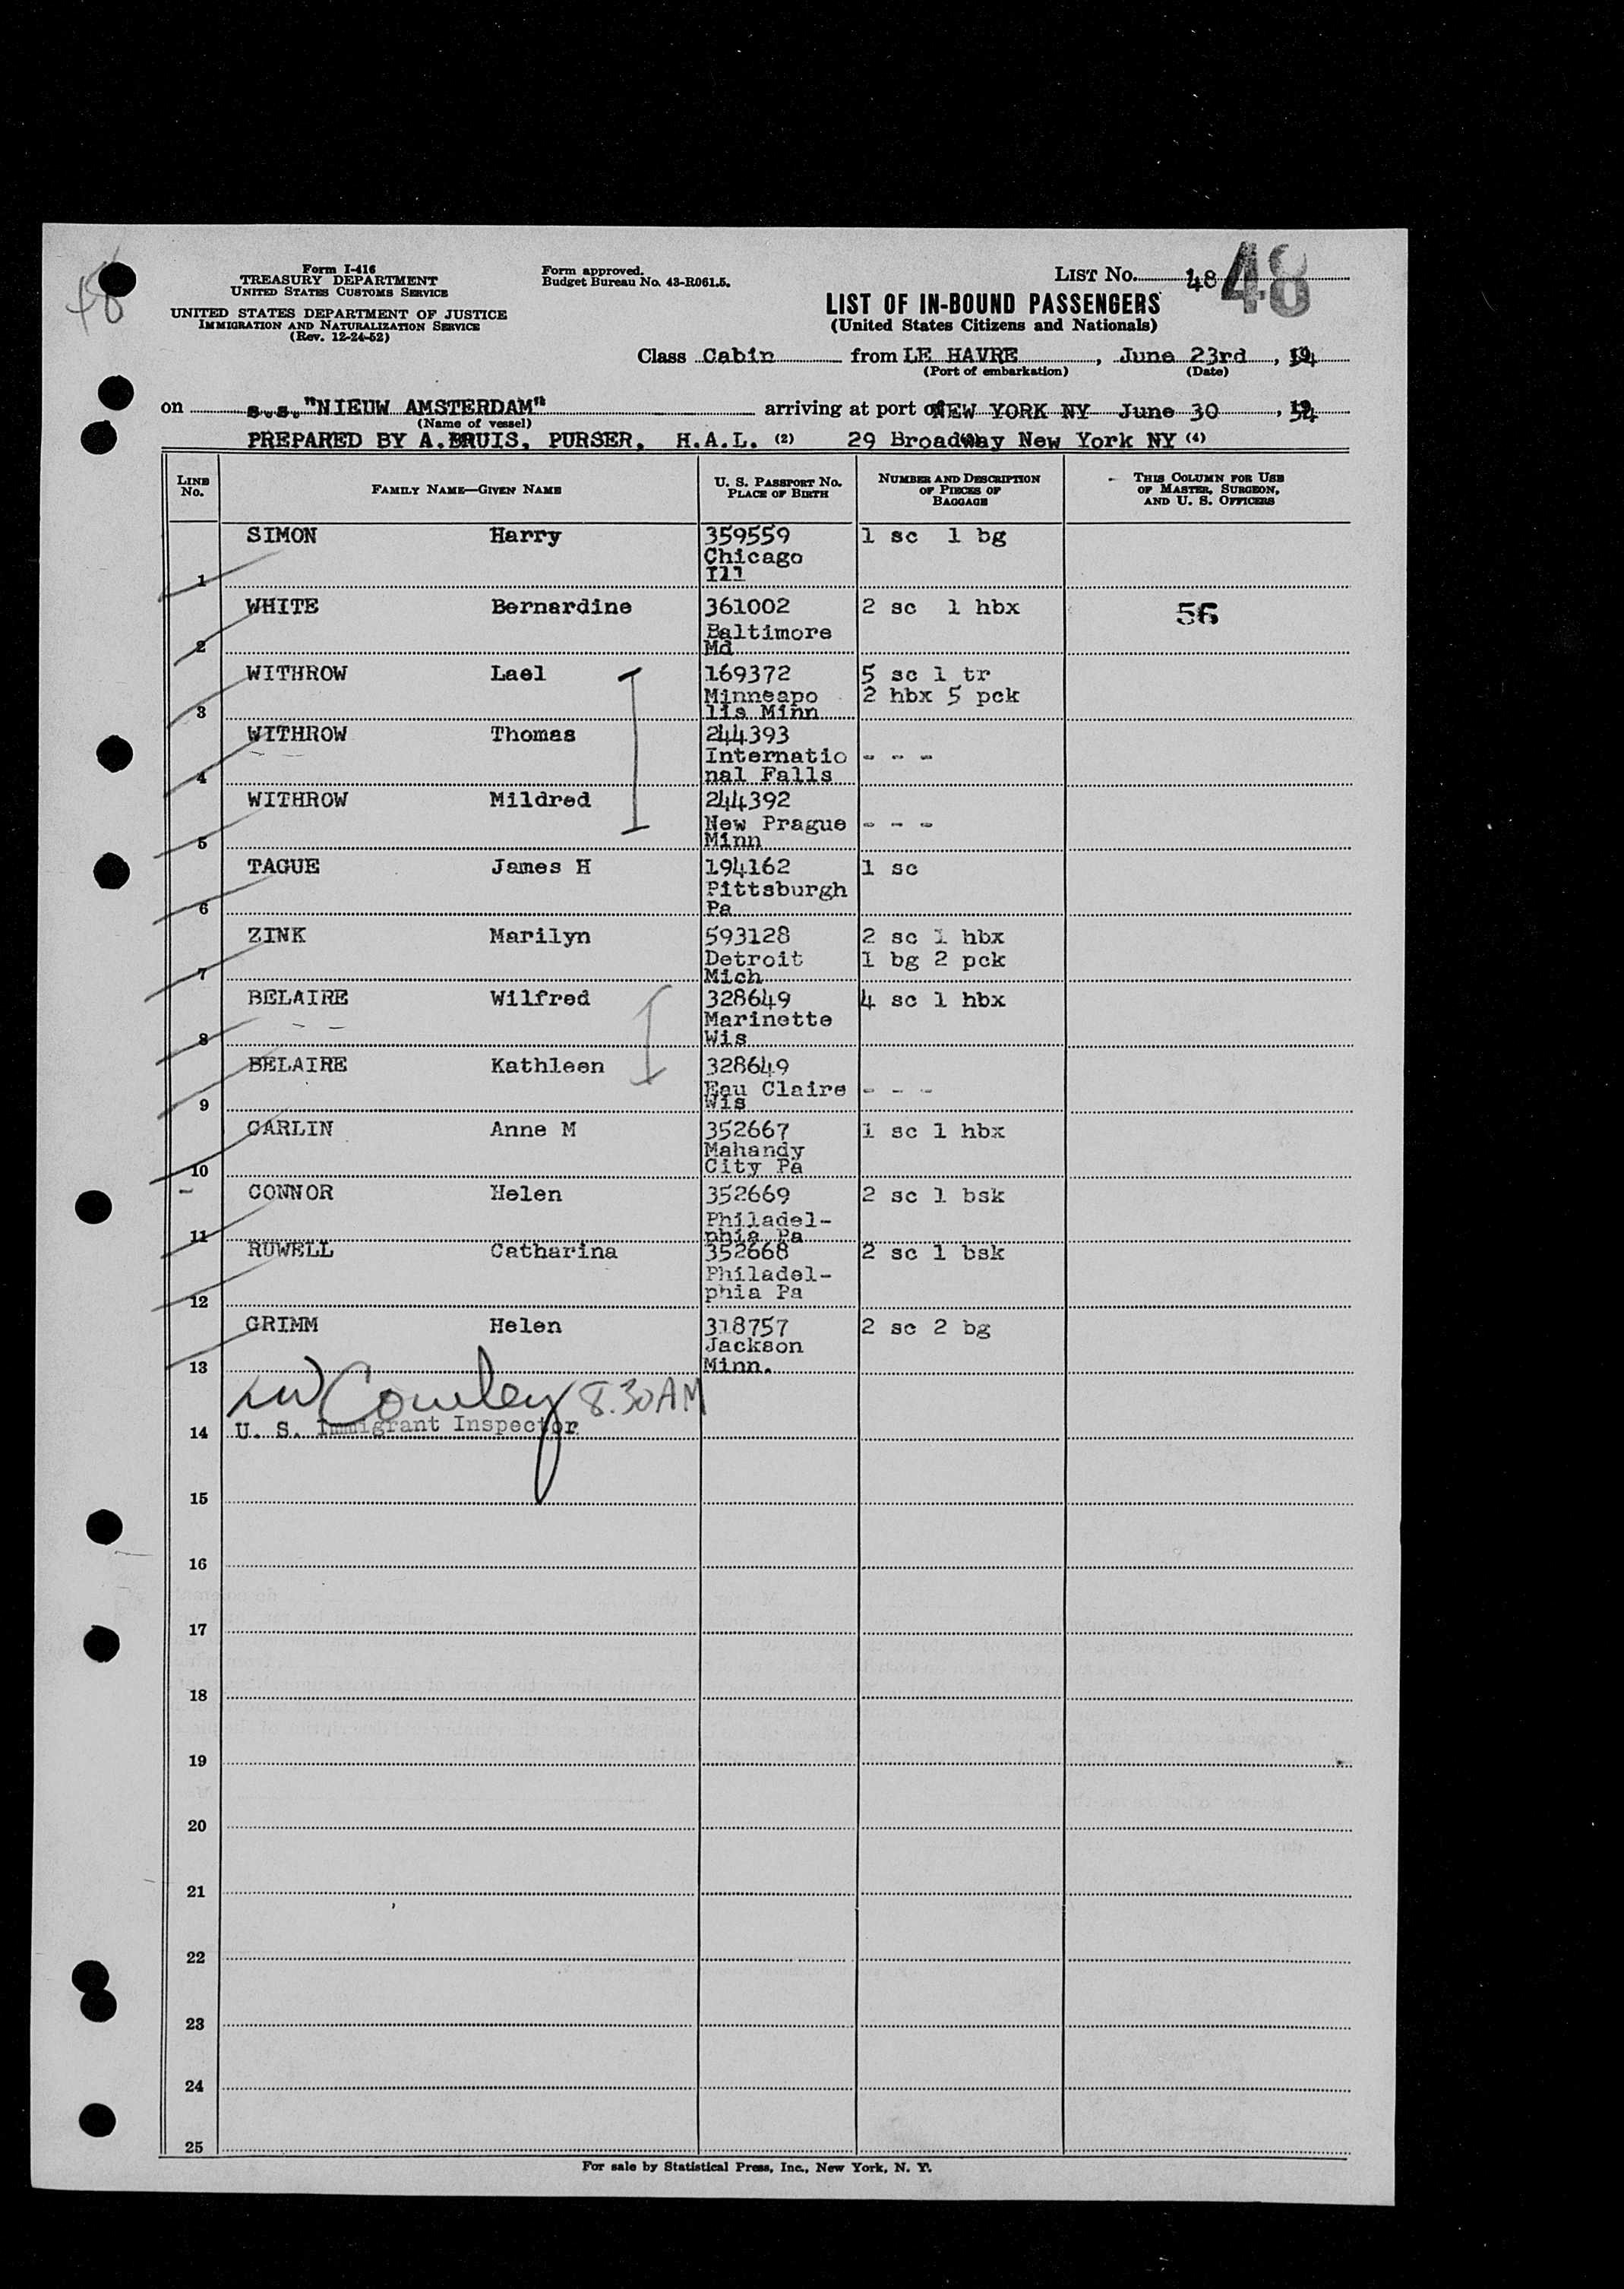 48
Form I-416
TREASURY DEPARTMENT
UNITED STATES CUSTOMS SERVICE
UNITED STATES DEPARTMENT OF JUSTICE
IMMIGRATION AND NATURALIZATION SERVICE
(Rev. 12-24-52)
Form approved.
Budget Bureau No. 43-R061.5.
LIST No. 48 48
LIST OF IN-BOUND PASSENGERS
(United States Citizens and Nationals)
Class Cabin from LE HAVRE, June 23rd, 1954
(Port of embarkation) (Date)
on s.s."NIEUW AMSTERDAM" arriving at port of NEW YORK NY June 30, 1954
(Name of vessel)
PREPARED BY A.BRUIS, PURSER, H.A.L. (2) 29 Broadway New York NY (4)
LINE No. FAMILY NAME—GIVEN NAME U. S. PASSPORT No. PLACE OF BIRTH NUMBER AND DESCRIPTION OF PIECES OF BAGGAGE THIS COLUMN FOR USE OF MASTER, SURGEON, AND U. S. OFFICERS
SIMON Harry 359559 1 sc 1 bg
Chicago
1 Ill
WHITE Bernardine 361002 2 sc 1 hbx 56
Baltimore
2 Md
WITHROW Lael 169372 5 sc 1 tr
Minneapo 2 hbx 5 pck
3 lis Minn
WITHROW Thomas 244393
Internatio - - -
4 nal Falls
WITHROW Mildred 244392
New Prague - - -
5 Minn
TAGUE James H 194162 1 sc
Pittsburgh
6 Pa
ZINK Marilyn 593128 2 sc 1 hbx
Detroit 1 bg 2 pck
7 Mich
BELAIRE Wilfred 328649 4 sc 1 hbx
Marinette
8 Wis
BELAIRE Kathleen 328649
Eau Claire - - -
9 Wis
CARLIN Anne M 352667 1 sc 1 hbx
Mahandy
10 City Pa
CONNOR Helen 352669 2 sc 1 bsk
Philadel-
11 phia Pa
RUWELL Catharina 352668 2 sc 1 bsk
Philadel-
12 phia Pa
GRIMM Helen 318757 2 sc 2 bg
Jackson
13 Minn.
Cowley 8.30AM
14 U. S. Immigrant Inspector
15
16
17
18
19
20
21
22
23
24
25
For sale by Statistical Press, Inc., New York, N. Y.